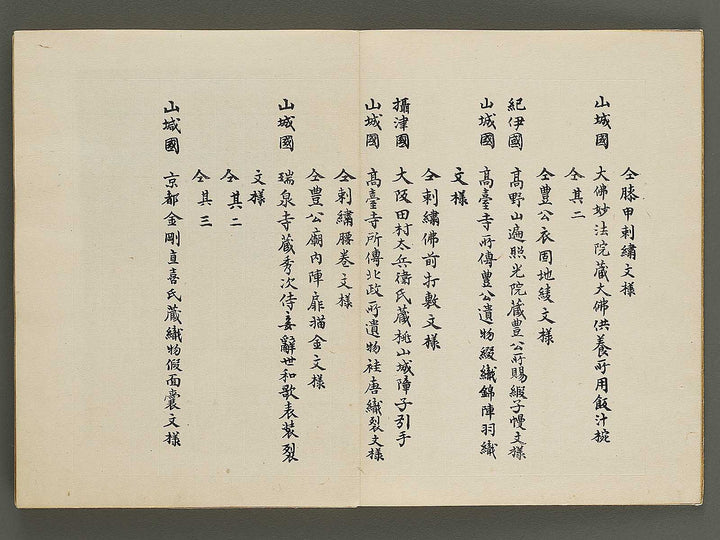 仝膝甲刺繡文樣
山城國 大佛妙法院藏大佛供養所用飯汁椀
仝其二
仝豊公衣固地綾文樣
紀伊國 髙野山遍照光院藏豊公所賜緞子幔文樣
山城國 髙臺寺所傳豊公遺物綴織錦陣羽織
文樣
仝刺繡佛前打敷文樣
攝津國 大阪田村太兵衛氏藏桃山城障子引手
山城國 髙臺寺所傳北政所遺物袿唐織裂文樣
仝刺繡腰卷文樣
仝豊公廟內陣扉描金文樣
山城國 瑞泉寺藏秀次侍妾辭世和歌表裝裂
文樣
仝其二
仝其三
山城國 京都金剛直喜氏藏織物假面囊文樣